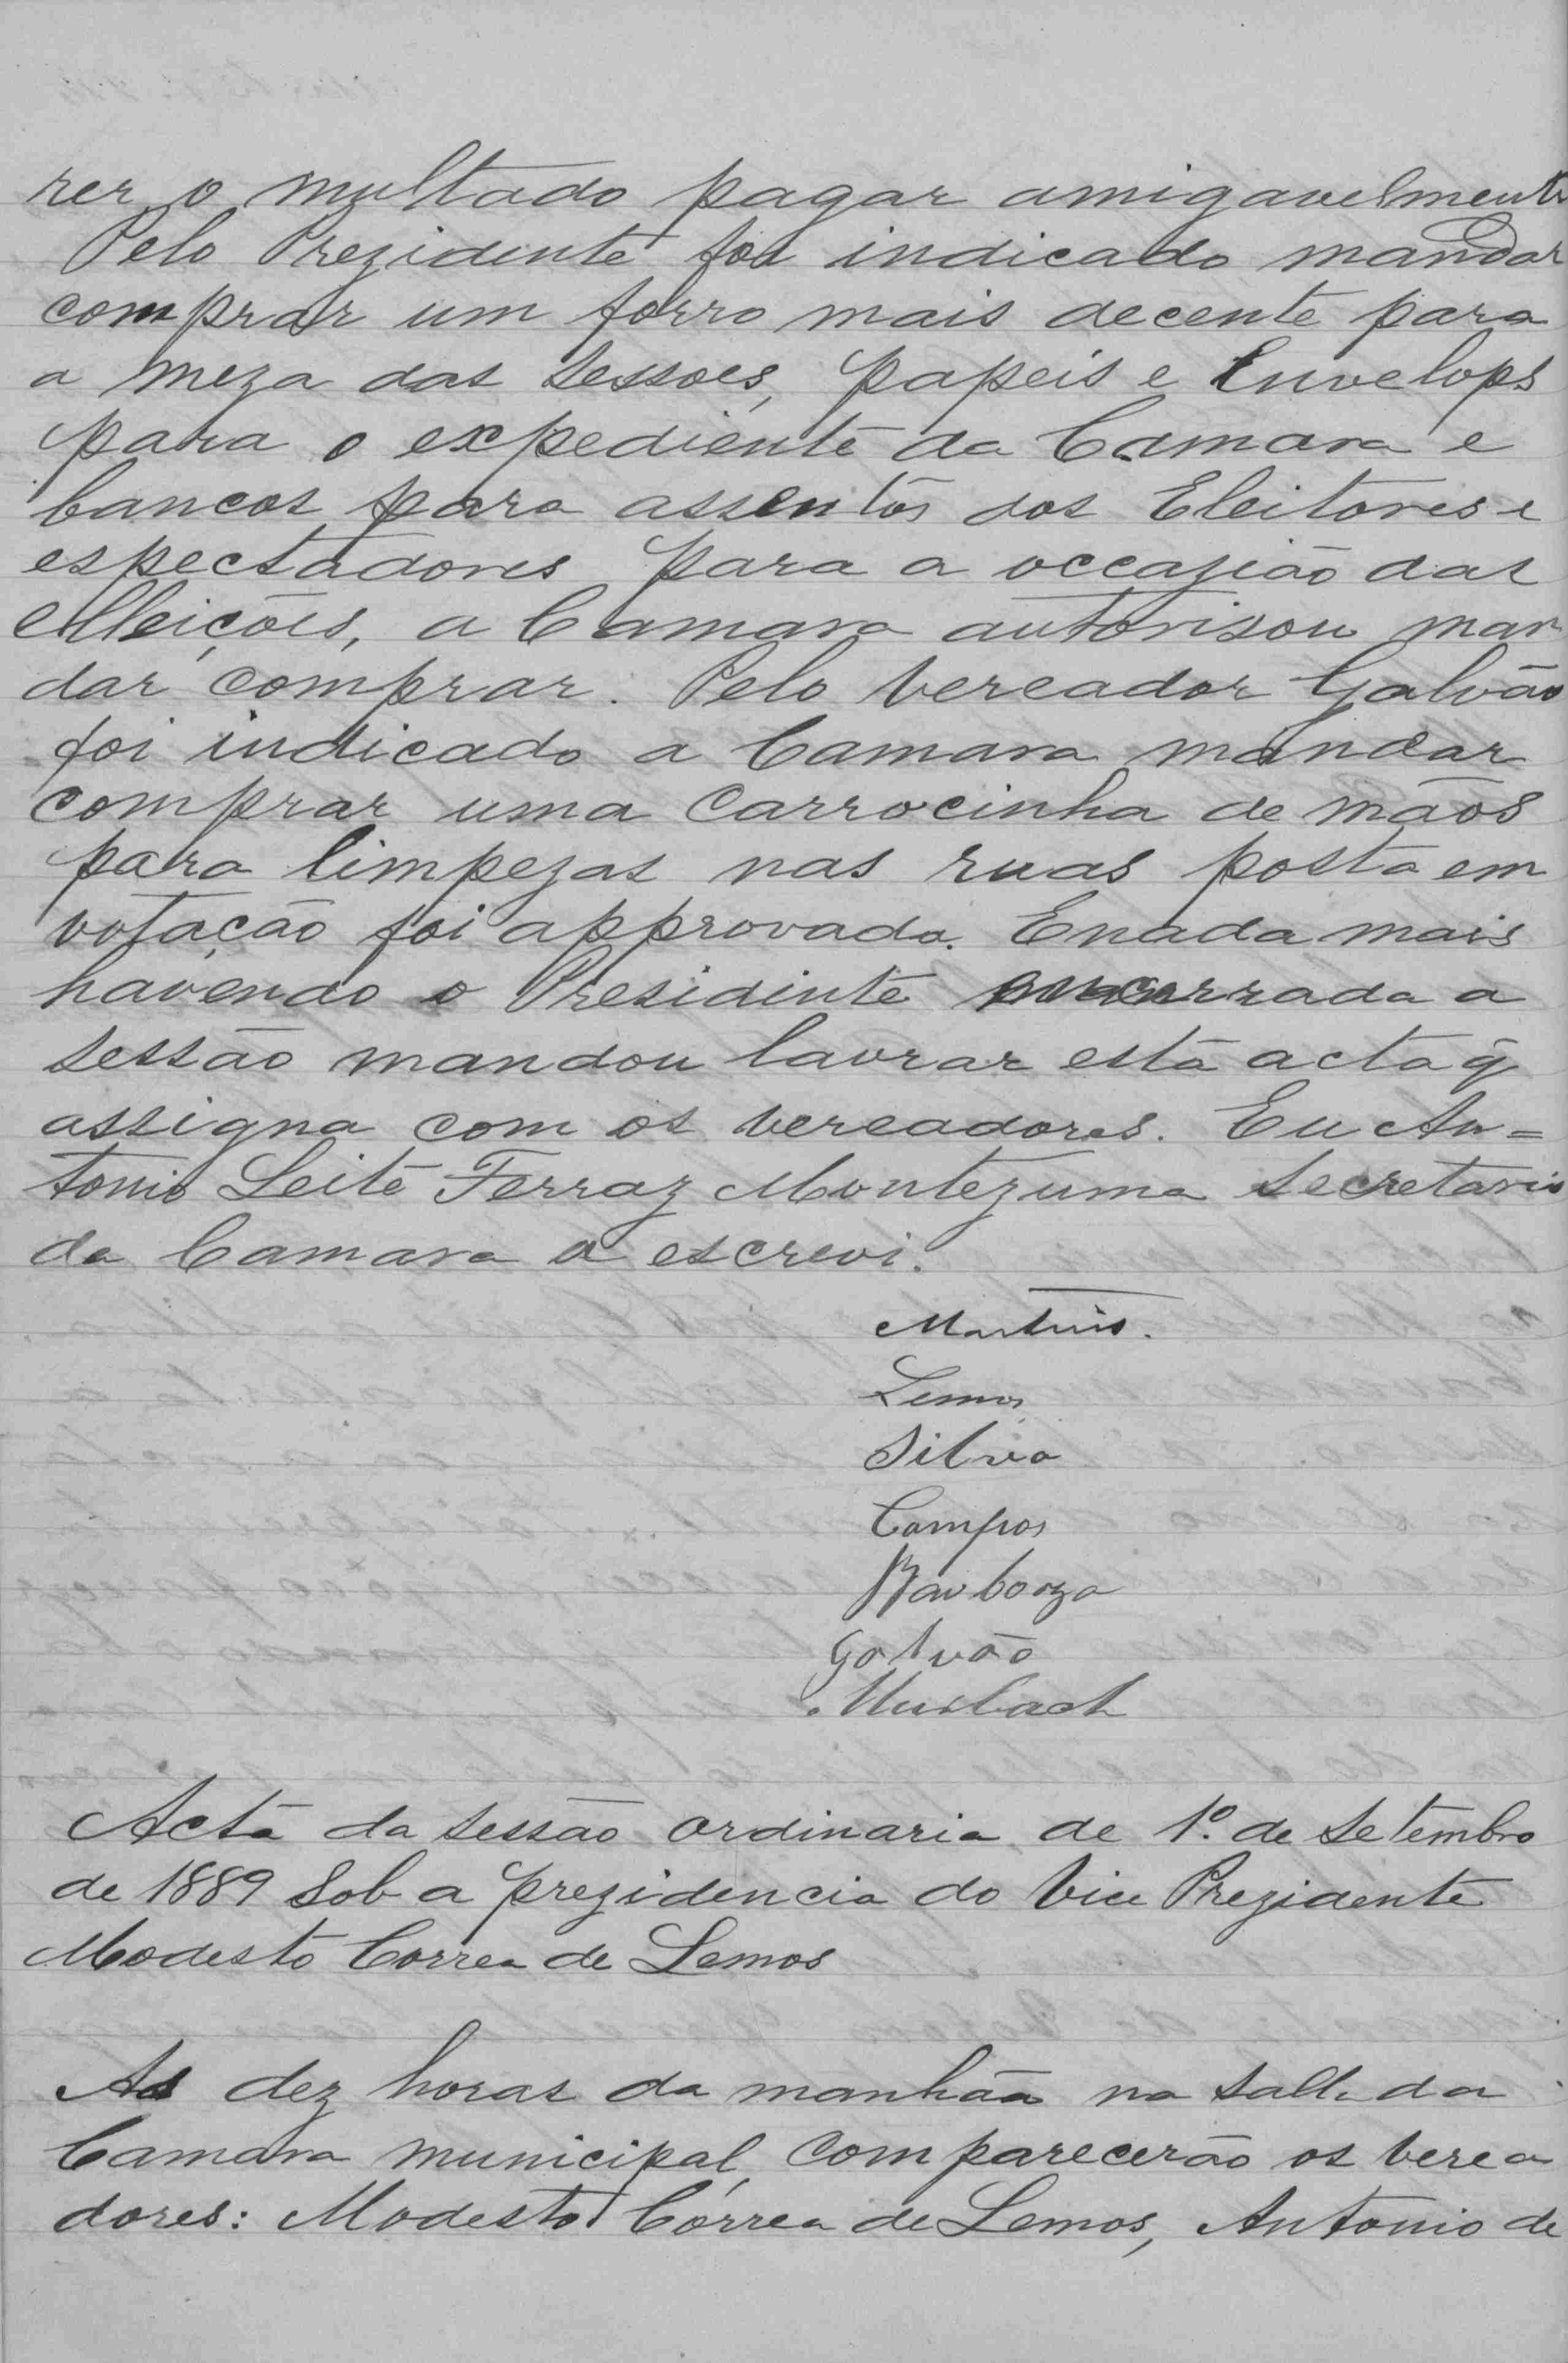 rer o multado pagar amigavelmente
Pelo Prezidente foi indicado mandar
comprar um forro mais decente para
a meza das Sessoes, papeis e Envelops
para o expediente da Camara e
bancos para assentos dos Eleitores e
espectadores para a occazião das
elleições, a Camara autorisou man
dar comprar. Pelo vereador Galvão
foi indicado a Camara mandar
comprar uma Carrocinha de mãos
para limpezas nas ruas posta em
votação foi approvada. E nada mais
havendo o Presidente encerrada a
sessão mandou lavrar esta acta q̃
assigna com os vereadores. Eu An=
tonio Leite Ferraz Montezuma Secretario
da Camara a escrevi.
Martins.
Lemos
Silva
Campos
Barboza
Galvão
Acta da Sessão ordinaria de 1º. de Setembro
de 1889 Sob a prezidencia do Vice Prezidente
Modesto Correa de Lemos
As dez horas da manhãa na Salla da
Camara municipal, comparecerão os verea
dores: Modesto Corrêa de Lemos, Antonio de